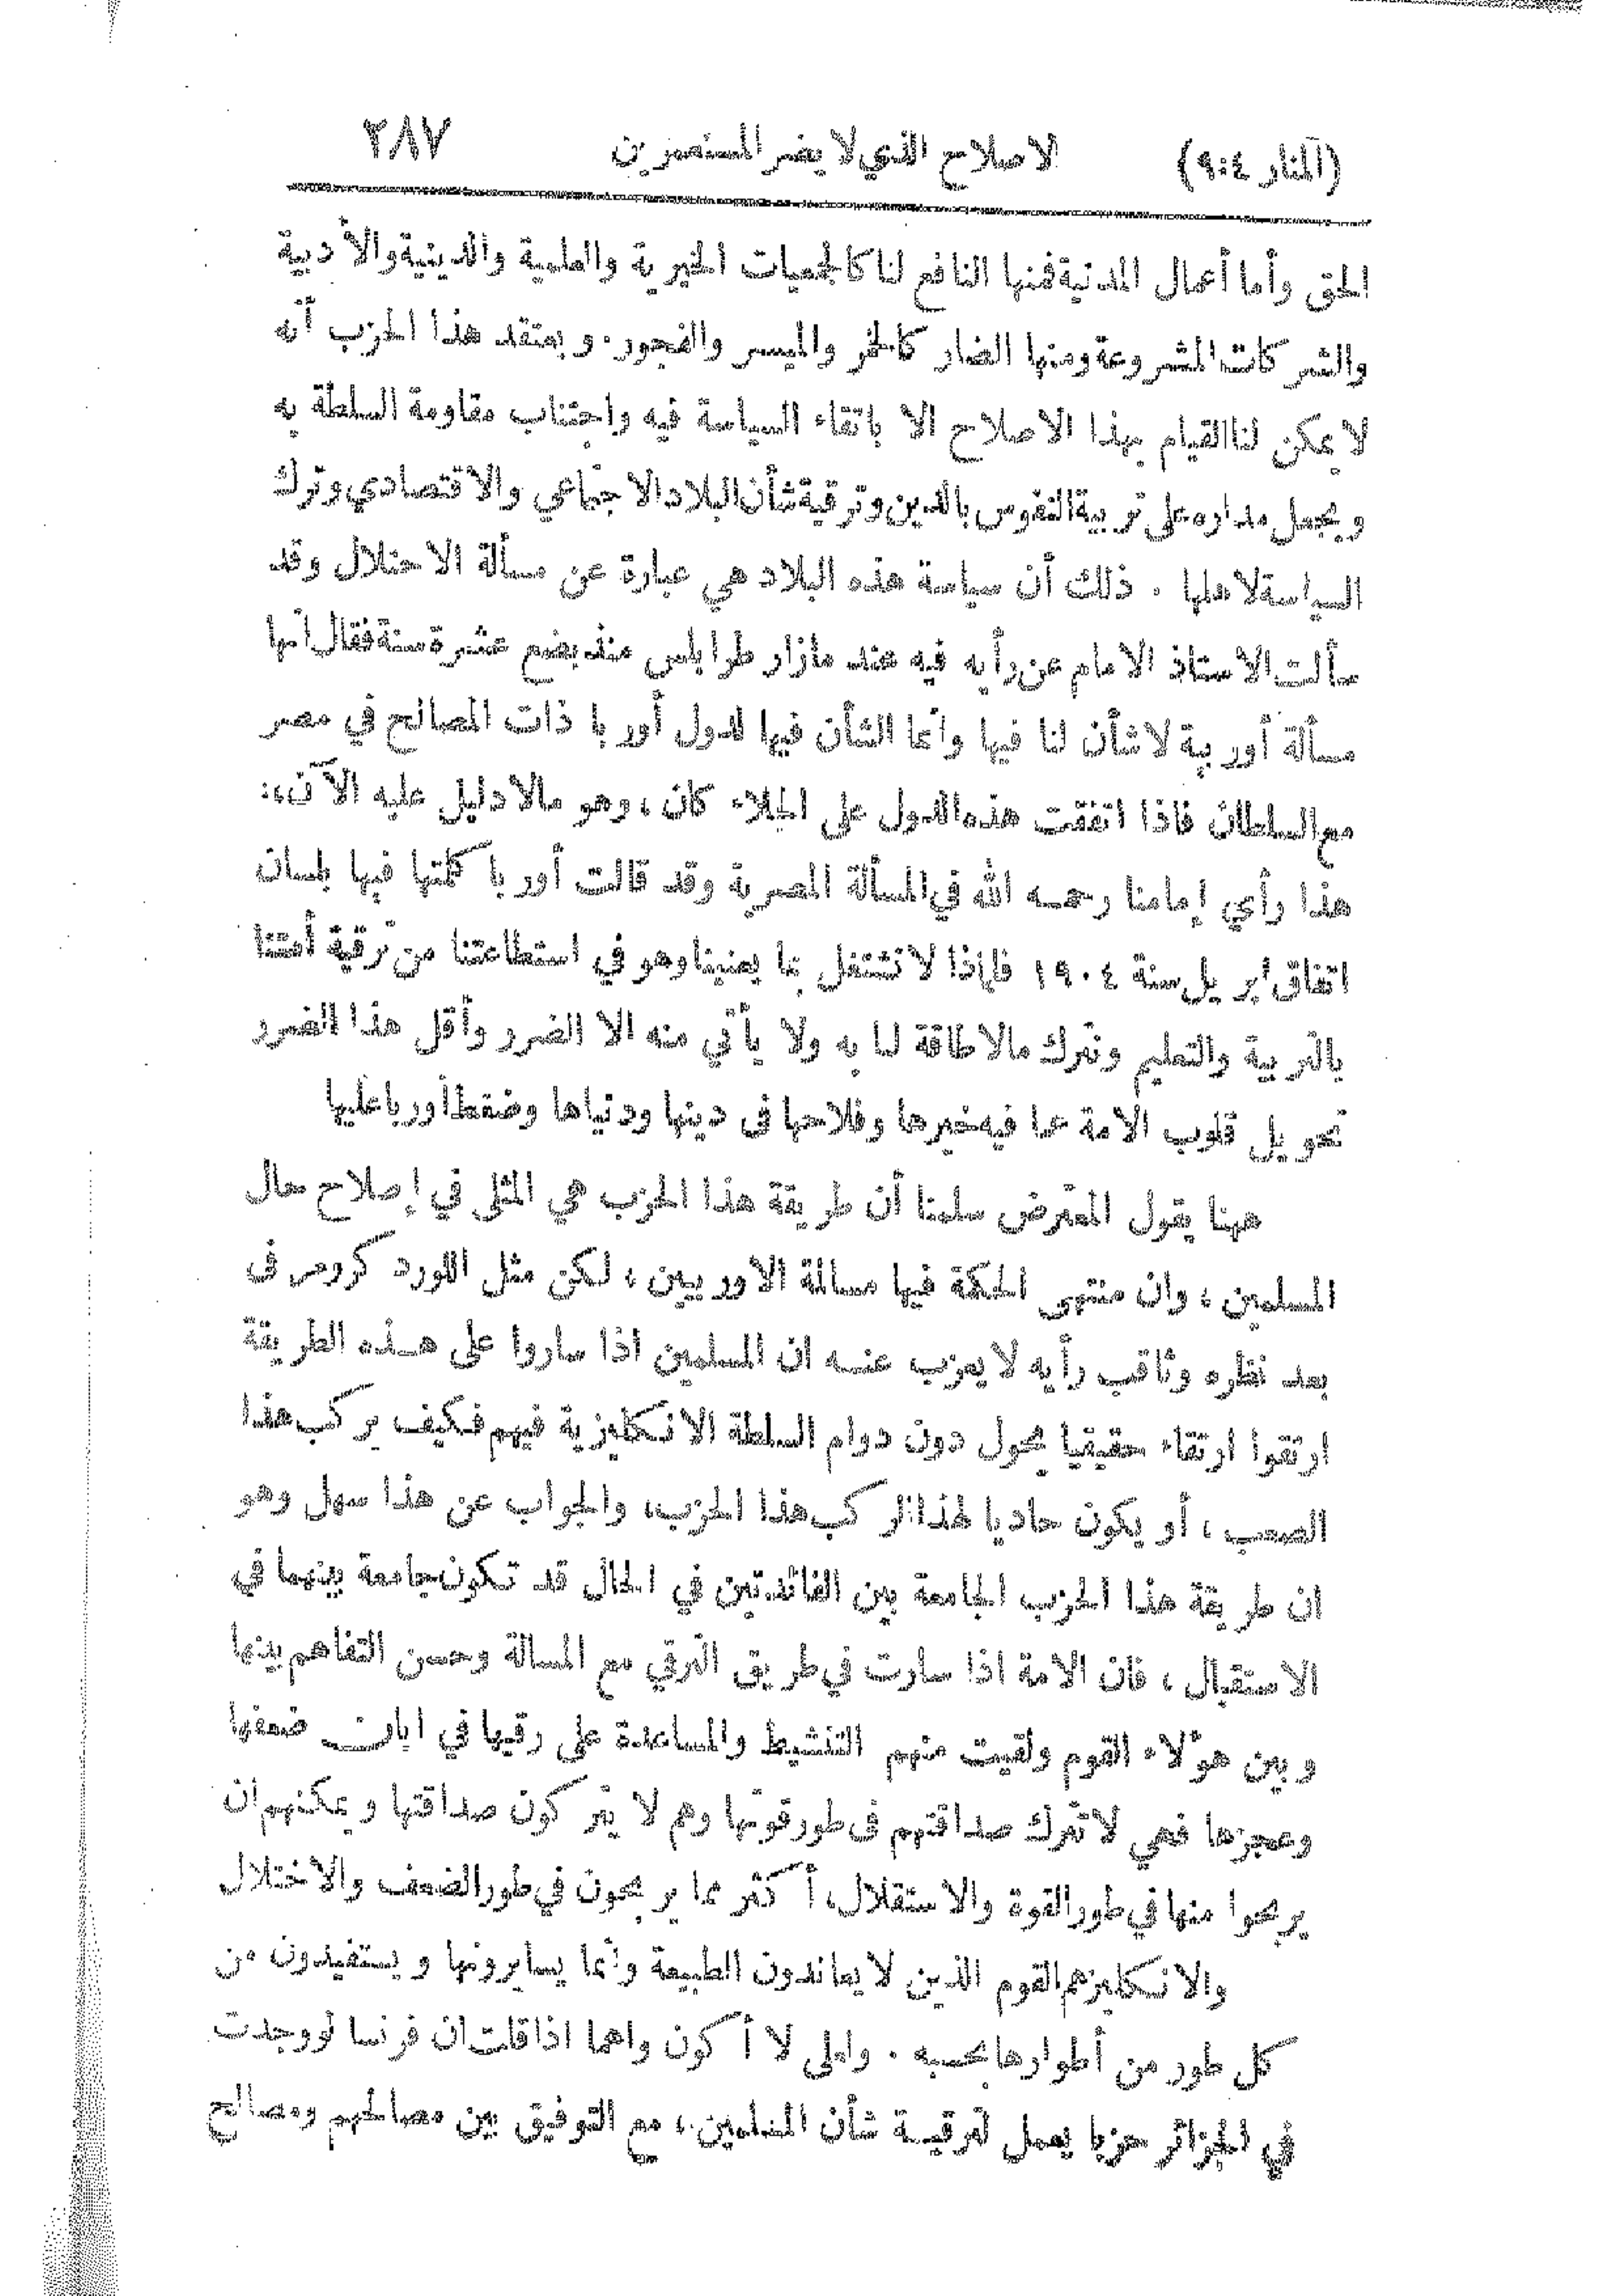 (المنار ٤:٩) الاصلاح الذي لا يضر المستعمرين ٢٨٧
الحق وأما أعمال المدنية فمنها النافع لنا كالجمعيات الخيرية والعلمية والدينية والأدبية
والشركات المشروعة ومنها الضار كالخمر والميسر والفجور. ويعتقد هذا الحزب أنه
لا يمكن لنا القيام بهذا الاصلاح الا باتقاء السياسة فيه واجتناب مقاومة السلطة به
ويجعل مداره على تربية النفوس بالدين وترقية شأن البلاد الاجتماعي والاقتصادي وترك
السياسة لاهلها . ذلك أن سياسة هذه البلاد هي عبارة عن مسألة الاحتلال وقد
سألت الاستاذ الامام عن رأيه فيه عند ما زار طرابلس منذ بضع عشرة سنة فقال انها
مسألة أوربية لا شأن لنا فيها وانما الشأن فيها لدول أوربا ذات المصالح في مصر
مع السلطان فاذا اتفقت هذه الدول على الجلاء كان ، وهو مالا دليل عليه الآن ،:
هذا رأي إمامنا رحمه الله في المسألة المصرية وقد قالت أوربا كلمتها فيها بلسان
اتفاق ابريل سنة ١٩٠٤ فلماذا لا نشتغل بما يعنينا وهو في استطاعتنا من ترقية أمتنا
بالتربية والتعليم ونترك مالا طاقة لنا به ولا يأتي منه الا الضرر وأقل هذا الضرر
تحويل قلوب الامة عما فيه خيرها وفلاحها في دينها ودنياها وضغط أوربا عليها
ههنا يقول المعترض سلمنا أن طريقة هذا الحزب هي المثلى في إصلاح حال
المسلمين ، وان منتهى الحكمة فيها مسالمة الاوربيين ، لكن مثل اللورد كرومر في
بعد نظره وثاقب رأيه لا يعزب عنه ان المسلمين اذا ساروا على هذه الطريقة
ارتقوا ارتقاء حقيقيا يحول دون دوام السلطة الانكليزية فيهم فكيف يركب هذا
الصعب ، أو يكون حاديا لهذا الركب هذا الحزب، والجواب عن هذا سهل وهو
ان طريقة هذا الحزب الجامعة بين الفائدتين في الحال قد تكون جامعة بينهما في
الاستقبال ، فان الامة اذا سارت في طريق الترقي مع المسالمة وحسن التفاهم بينها
وبين هؤلاء القوم ولقيت منهم التنشيط والمساعدة على رقيها في ابان ضعفها
وعجزها فهي لا تترك صداقتهم في طور قوتها وهم لا يتركون صداقتها ويمكنهم ان
يربحوا منها في طور القوة والاستقلال، أكثر مما يربحون في طور الضعف والاختلال
والانكليز هم القوم الذين لا يعاندون الطبيعة وانما يسايرونها ويستفيدون من
كل طور من أطوارها بحسبه . ولعلي لا أكون واهما اذا قلت ان فرنسا لو وجدت
في الجزائر حزبا يعمل لترقية شأن المسلمين ، مع التوفيق بين مصالحهم ومصالح